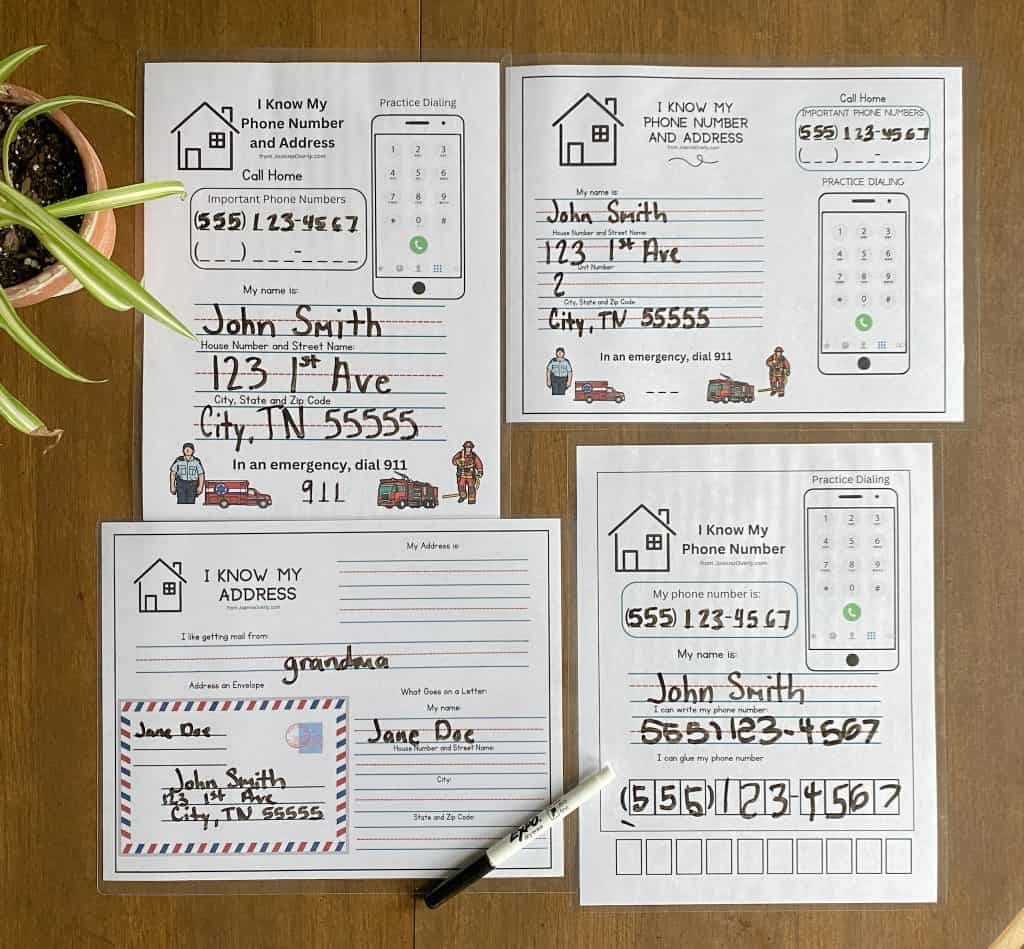 I Know My
Phone Number
and Address
from JoannaOverly.com
Practice Dialing
1 2 3
4 5 6
7 8 9
* 0 #
Call Home
Important Phone Numbers
(555) 123-4567
(___) ___-____
My name is:
John Smith
House Number and Street Name:
123 1st Ave
City, State and Zip Code
City, TN 55555
In an emergency, dial 911
911
I KNOW MY
PHONE NUMBER
AND ADDRESS
from JoannaOverly.com
Call Home
IMPORTANT PHONE NUMBERS
(555) 123-4567
(___) ___-____
PRACTICE DIALING
1 2 3
4 5 6
7 8 9
* 0 #
My name is:
John Smith
House Number and Street Name:
123 1st Ave
Unit Number
2
City, State and Zip Code
City, TN 55555
In an emergency, dial 911
_ _ _
I KNOW MY
ADDRESS
from JoannaOverly.com
My Address is:
I like getting mail from:
grandma
Address an Envelope
Jane Doe
John Smith
123 1st Ave
City, TN 55555
What Goes on a Letter:
My name:
Jane Doe
House Number and Street Name:
City:
State and Zip Code:
EXPO
I Know My
Phone Number
from JoannaOverly.com
Practice Dialing
1 2 3
4 5 6
7 8 9
* 0 #
My phone number is:
(555) 123-4567
My name is:
John Smith
I can write my phone number:
(555) 123-4567
I can glue my phone number
(555) 123-4567